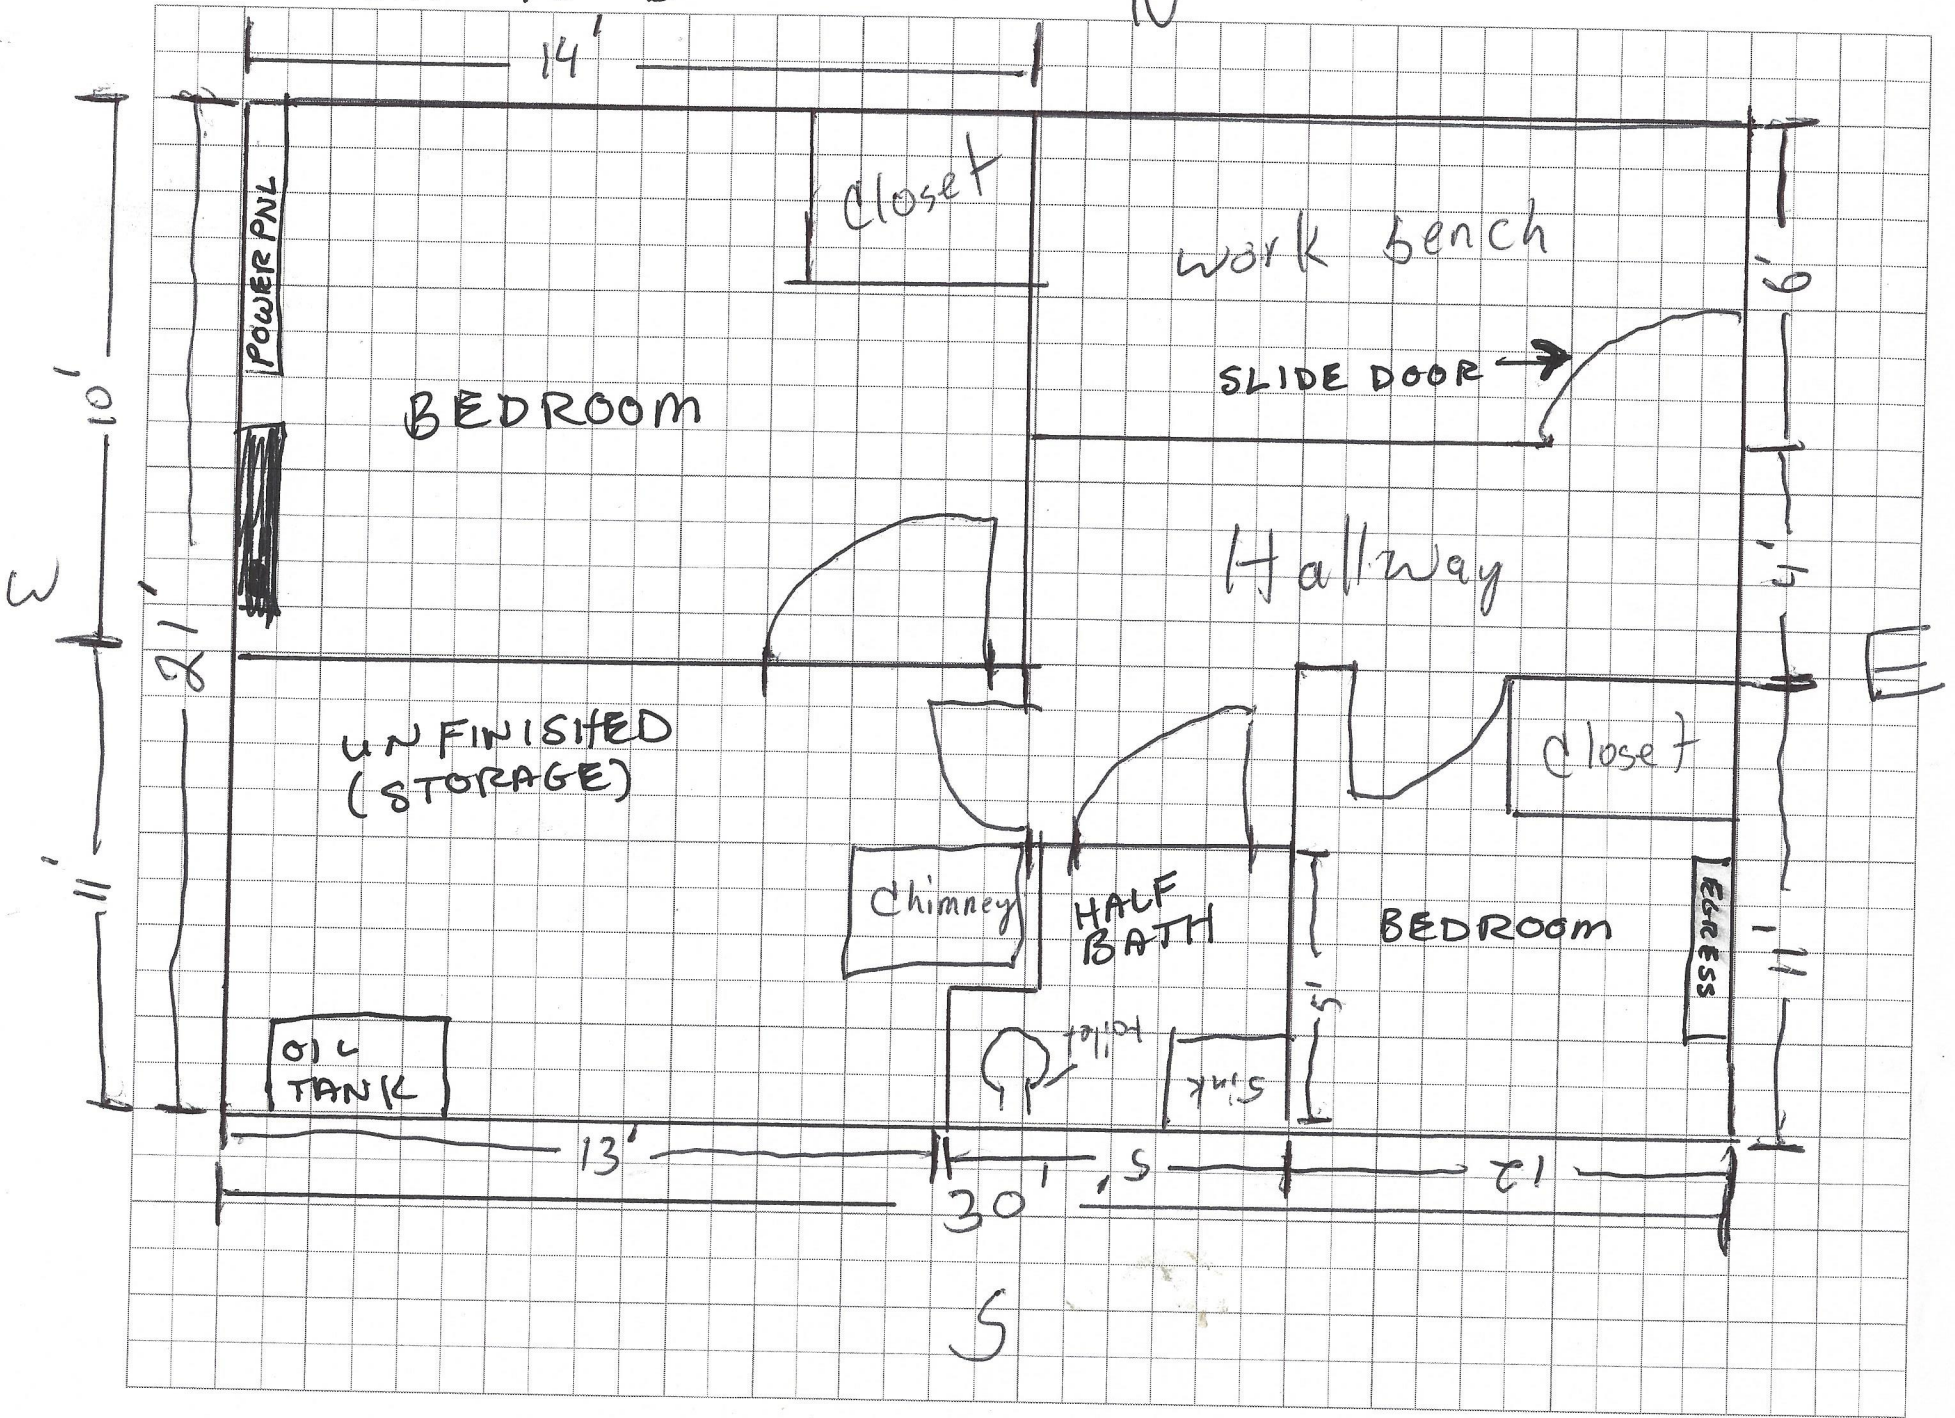 N
14'
POWER PNL
Closet
work bench
6'
SLIDE DOOR →
10'
BEDROOM
Hallway
4'
W
21'
E
UNFINISHED
(STORAGE)
Closet
11'
Chimney
HALF
BATH
BEDROOM
EGRESS
11'
5'
toilet
sink
OIL
TANK
13'
5'
12
30'
S